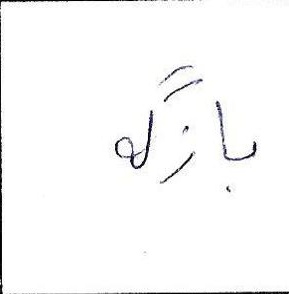 بازگە